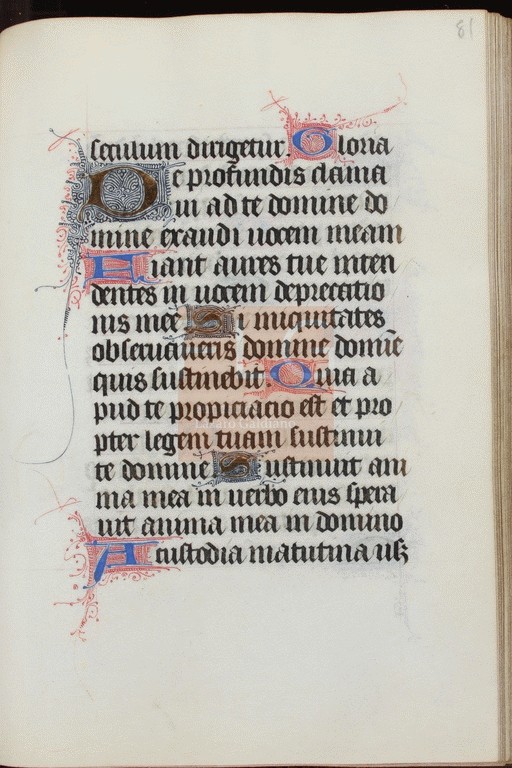 81
seculum dirigetur. Gloria
De profundis clama
ui ad te domine do
mine exaudi uocem meam
Fiant aures tue inten
dentes in uocem deprecatio
nis mee Si iniquitates
obseruaueris domine domīe
quis sustinebit. Quia a
pud te propiciacio est et pro
pter legem tuam sustinui
te domine Sustinuit ani
ma mea in uerbo eius spera
uit anima mea in domino
A custodia matutina usqꝫ
Lázaro Galdiano